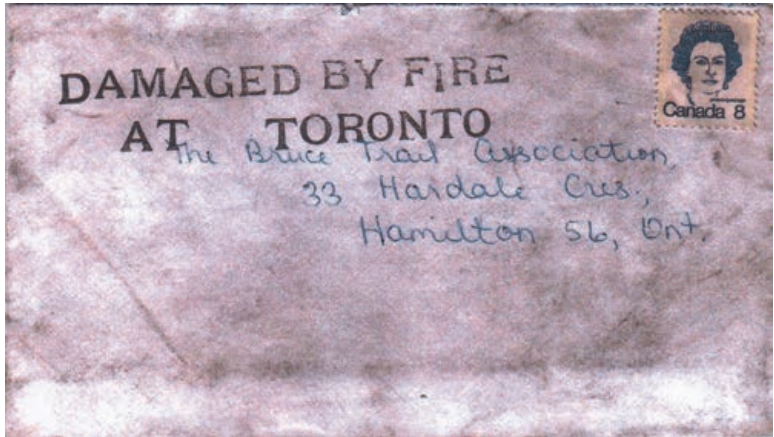 DAMAGED BY FIRE
AT TORONTO
Canada 8
The Bruce Trail Association,
33 Hardale Cres.,
Hamilton 56, Ont.